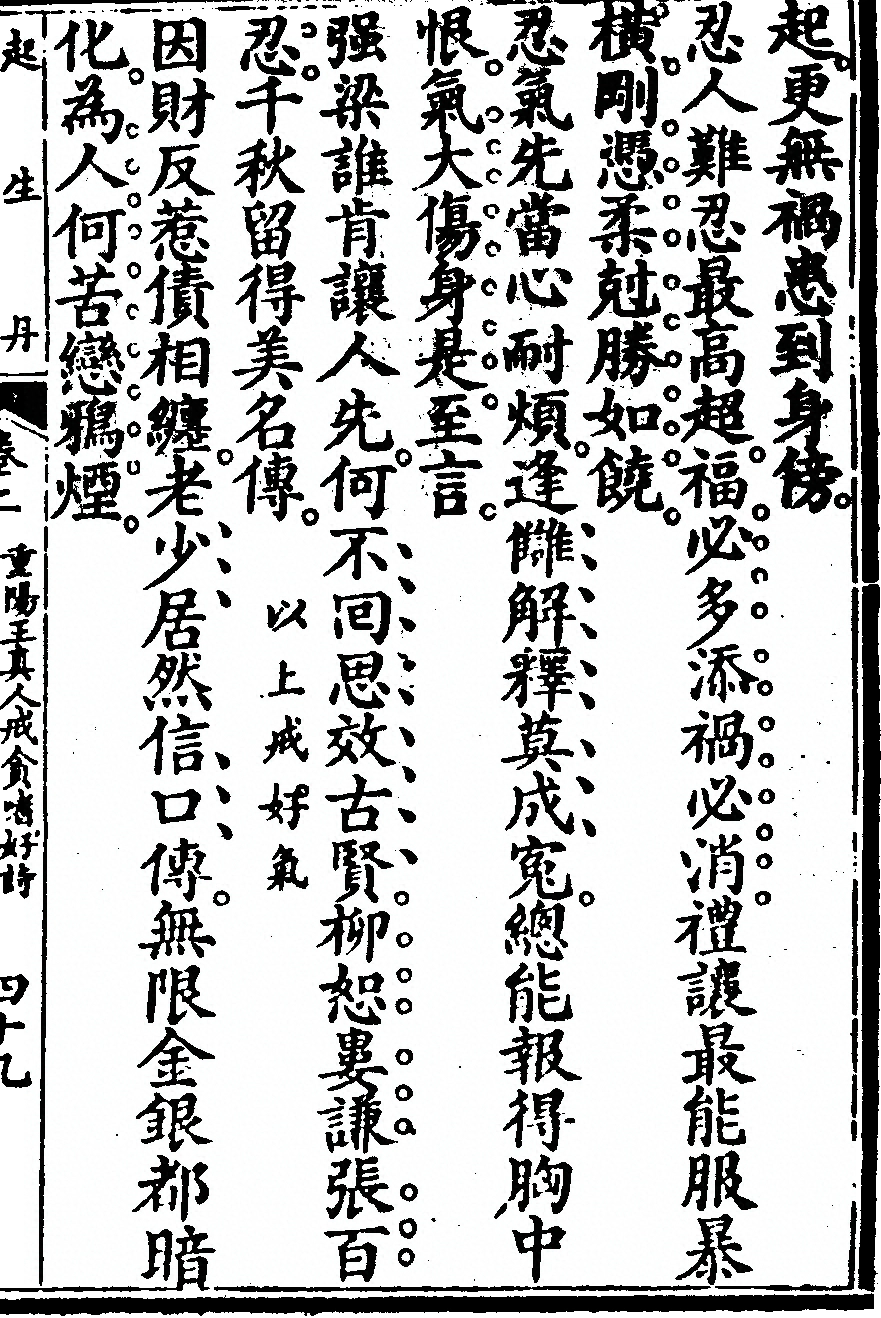 起更無禍患到身傍
忍人難忍最高超福必多添禍必消禮讓最能服暴
橫剛憑柔尅勝如饒
忍氣先當心耐煩逢讎解釋莫成寃總能報得胸中
恨氣大傷身是至言
强梁誰肯讓人先何不囘思效古賢柳恕婁謙張百
忍千秋留得美名傳
以上戒好氣
因財反惹債相纏老少居然信口傳無限金銀都暗
化為人何苦戀鴉煙
起生丹
卷二
重陽王真人戒貪嗜好詩
四十九